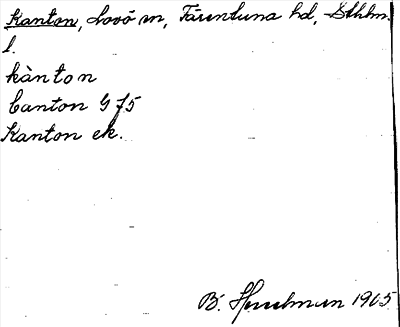 Kanton, Lovö sn, Färentuna hd, Sthlm.
l.
kànton
Canton G f5
Kanton ek.
B. 1965